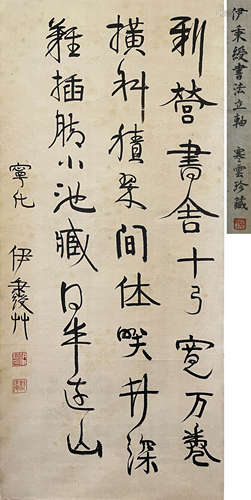 伊秉綬書法立軸 寒雲珍藏
營書舍十弓寬万卷
橫斜積架間休井深
難插腳小池臧半邊山
寧化 伊秉綬艸